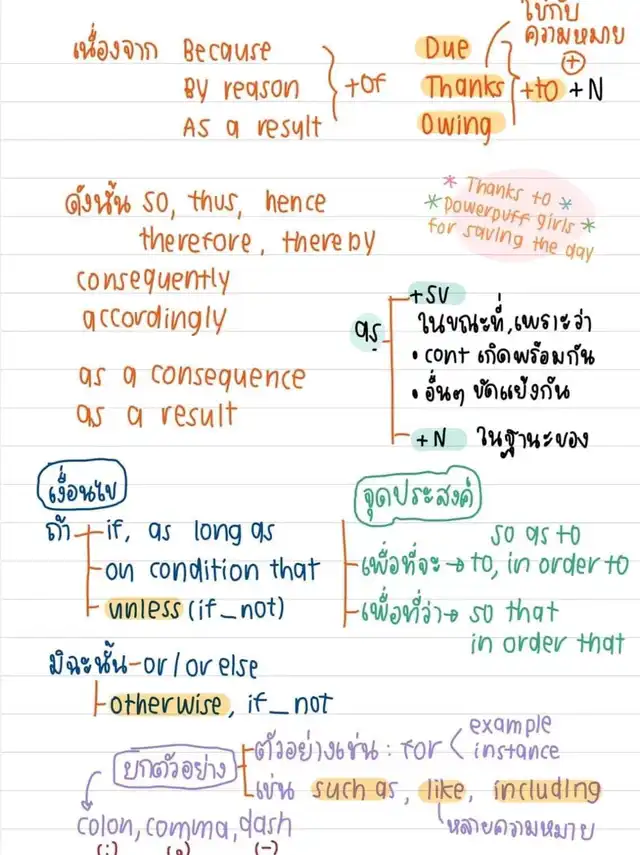 ใช้กับ
ความหมาย
+
เนื่องจาก Because
By reason
As a result
+of
Due
Thanks
Owing
+to +N
ดังนั้น so, thus, hence
therefore, thereby
consequently
accordingly
as a consequence
as a result
* Thanks to *
* Powerpuff girls *
for saving the day
as
+SV
ในขณะที่, เพราะว่า
• cont เกิดพร้อมกัน
• อื่นๆ ขัดแย้งกัน
+N ในฐานะของ
เงื่อนไข
ถ้า if, as long as
on condition that
unless (if_not)
มิฉะนั้น - or/or else
otherwise, if_not
จุดประสงค์
so as to
เพื่อที่จะ → to, in order to
เพื่อที่ว่า → so that
in order that
ยกตัวอย่าง
ตัวอย่างเช่น : for < example
instance
เช่น such as, like, including
หลายความหมาย
colon, comma, dash
(:) (,) (-)